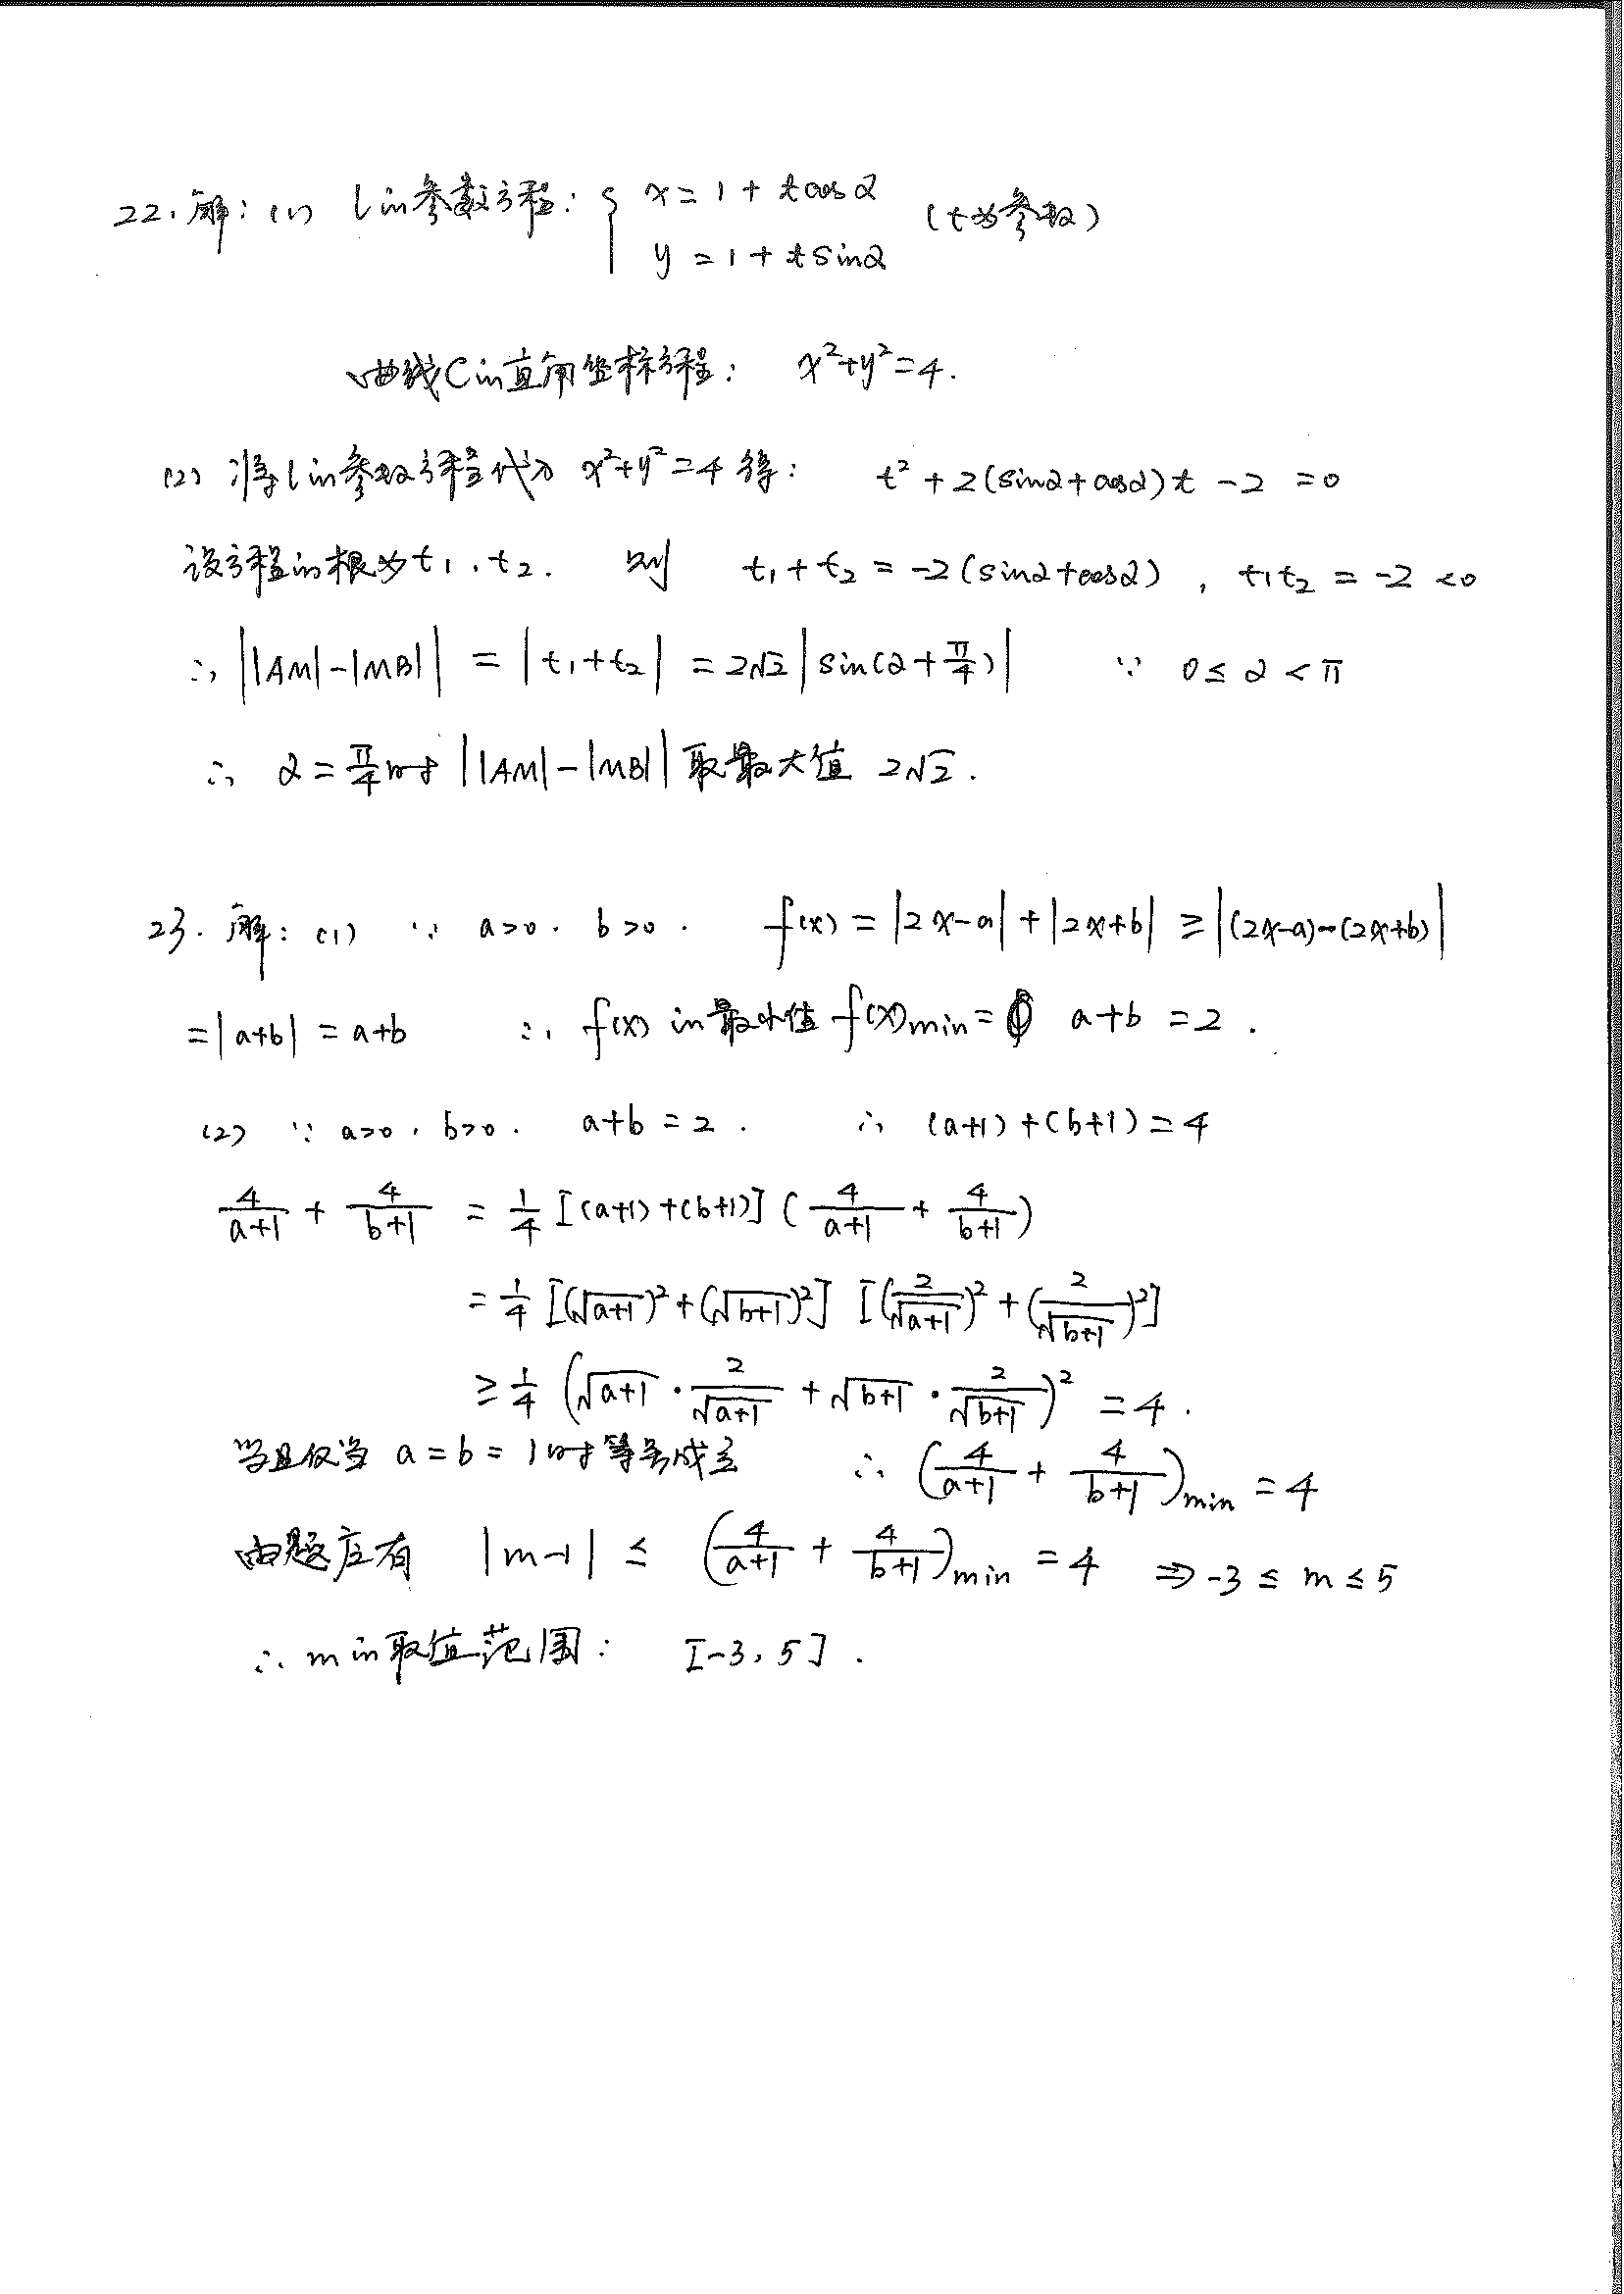 22. 解: (1) l的参数方程: { x = 1 + tcosα
y = 1 + tsinα (t为参数)
曲线C的直角坐标方程: x²+y²=4.
(2) 将l的参数方程代入 x²+y²=4 得: t² + 2(sinα+cosα)t - 2 = 0
设方程的根为t₁, t₂. 则 t₁ + t₂ = -2(sinα+cosα), t₁t₂ = -2 < 0
∴ ||AM|-|MB|| = |t₁+t₂| = 2√2|sin(α+π/4)| ∵ 0 ≤ α < π
∴ α = π/4时 ||AM|-|MB|| 取最大值 2√2.
23. 解: (1) ∵ a>0. b>0. f(x) = |2x-a| + |2x+b| ≥ |(2x-a)-(2x+b)|
= |a+b| = a+b ∴ f(x)的最小值 f(x)min = a+b = 2.
(2) ∵ a>0, b>0. a+b = 2. ∴ (a+1)+(b+1) = 4
4/(a+1) + 4/(b+1) = 1/4 [(a+1)+(b+1)] (4/(a+1) + 4/(b+1))
= 1/4 [(√(a+1))² + (√(b+1))²] [(2/√(a+1))² + (2/√(b+1))²]
≥ 1/4 (√(a+1) · 2/√(a+1) + √(b+1) · 2/√(b+1))² = 4.
当且仅当 a = b = 1时等号成立 ∴ (4/(a+1) + 4/(b+1))min = 4
由题应有 |m-1| ≤ (4/(a+1) + 4/(b+1))min = 4 ⇒ -3 ≤ m ≤ 5
∴ m的取值范围: [-3, 5].